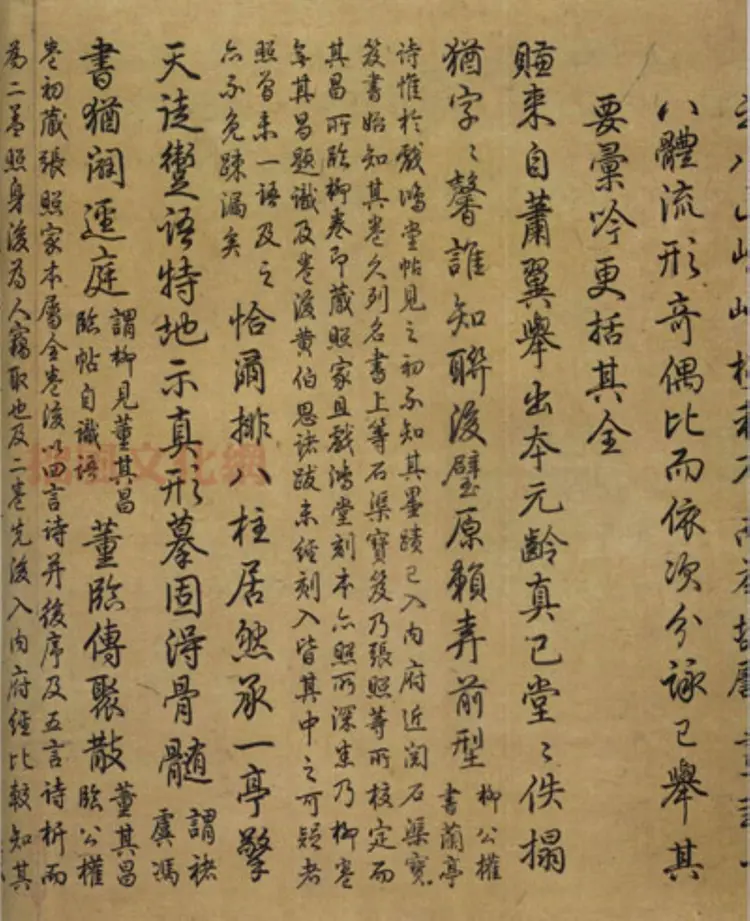 八體流形奇偶比而依次分詠已舉其
要彙吟更括其全
賺來自蕭翼舉出本元齡真已堂〻佚搨
猶字〻馨誰知聯後璧原賴弆前型
柳公權
書蘭亭
詩惟於戲鴻堂帖見之初不知其墨蹟已入內府近閱石渠寶
笈書始知其卷久列名書上等石渠寶笈乃張照等所校定而
其昌所臨柳卷即藏照家且戲鴻堂刻本亦照所深悉乃柳卷
無其昌題識及卷後黃伯思諸跋未經刻入皆其中之可疑者
照曾未一語及之
亦不免疎漏矣
恰爾排八柱居然承一亭擎
天徒躗語特地示真形摹固得骨髓
謂褚
虞馮
書猶闊逕庭
謂柳見董其昌
臨帖自識語
董臨傳聚散
董其昌
臨公權
卷初藏張照家本屬全卷後以四言詩并後序及五言詩析而
為二蓋照身後為人竊取也及二卷先後入內府經比較知其
文化網